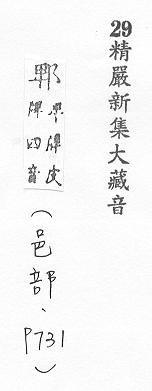 29精嚴新集大藏音
卑脾皮
牌四音
(邑部、P731)